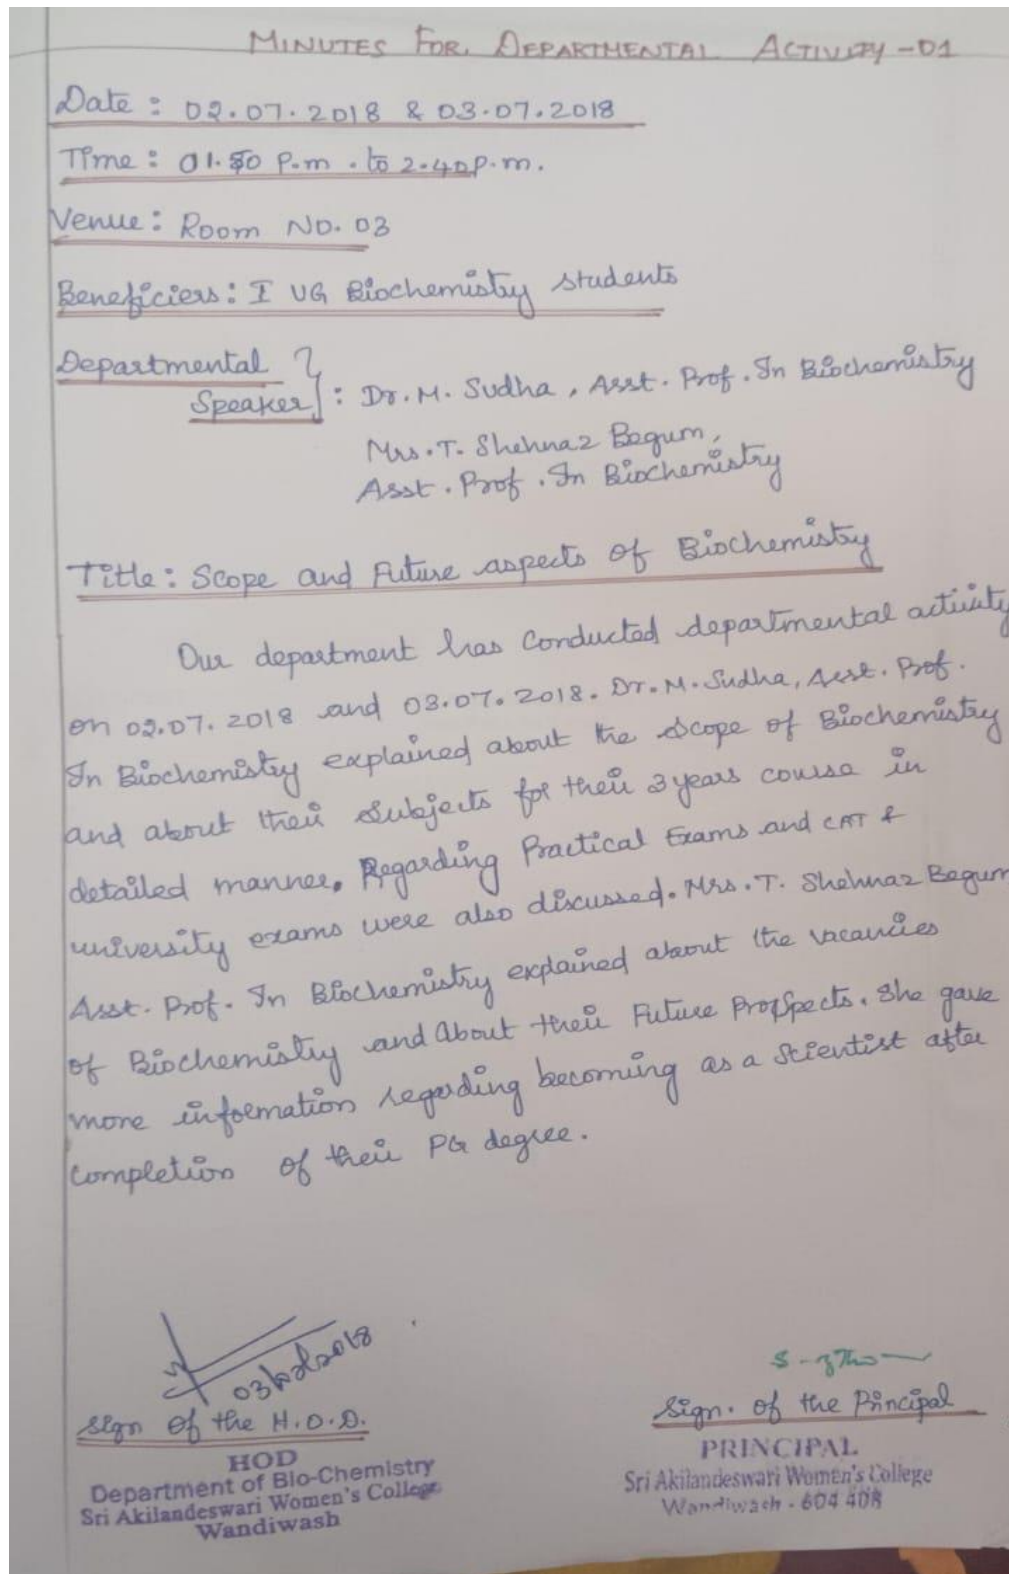 MINUTES FOR DEPARTMENTAL ACTIVITY -01
Date : 02.07.2018 & 03.07.2018
Time : 01.50 P.m. to 2.40p.m.
Venue : Room No. 03
Beneficiers : I UG Biochemistry students
Departmental
Speaker : Dr. M. Sudha, Asst. Prof. In Biochemistry
Mrs. T. Shehnaz Begum,
Asst. Prof. In Biochemistry
Title : Scope and Future aspects of Biochemistry
Our department has conducted departmental activity
on 02.07.2018 and 03.07.2018. Dr. M. Sudha, Asst. Prof.
In Biochemistry explained about the scope of Biochemistry
and about their subjects for their 3 years course in
detailed manner. Regarding Practical Exams and CAT &
university exams were also discussed. Mrs. T. Shehnaz Begum
Asst. Prof. In Biochemistry explained about the vacancies
of Biochemistry and about their Future Prospects. She gave
more information regarding becoming as a Scientist after
completion of their PG degree.
Sign of the H.O.D.
HOD
Department of Bio-Chemistry
Sri Akilandeswari Women's College
Wandiwash
Sign. of the Principal
PRINCIPAL
Sri Akilandeswari Women's College
Wandiwash - 604 408